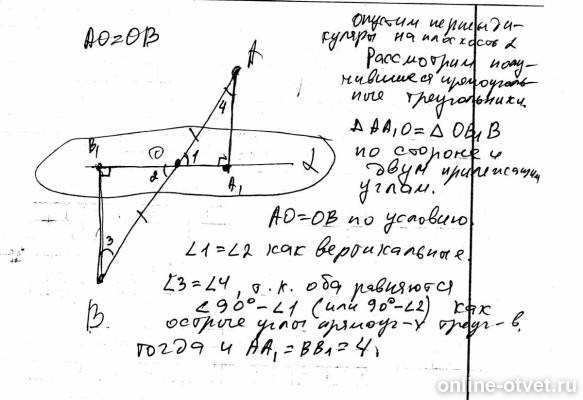 AO=OB
Опустим перпенди-
куляры на плоскость α
Рассмотрим полу-
чившиеся прямоуголь-
ные треугольники.
△ AA₁O = △ OB₁B
по стороне и
двум прилежащим
углам.
AO=OB по условию.
∠1=∠2 как вертикальные.
∠3=∠4, т.к. оба равняются
∠90°-∠1 (или 90°-∠2) как
острые углы прямоуг-х треуг-в.
тогда и AA₁=BB₁=4.
A
4
B₁
O
1
2
A₁
α
3
B
online-otvet.ru